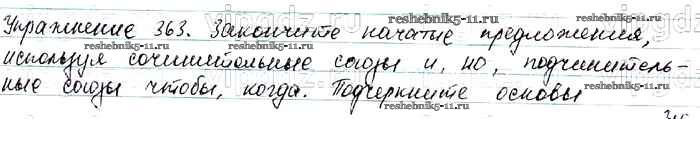 Упражнение 363. Закончите начатые предложения,
используя сочинительные союзы и, но, подчинитель-
ные союзы чтобы, когда. Подчеркните основы
reshebnik5-11.ru
reshebnik5-11.ru
reshebnik5-11.ru
reshebnik5-11.ru